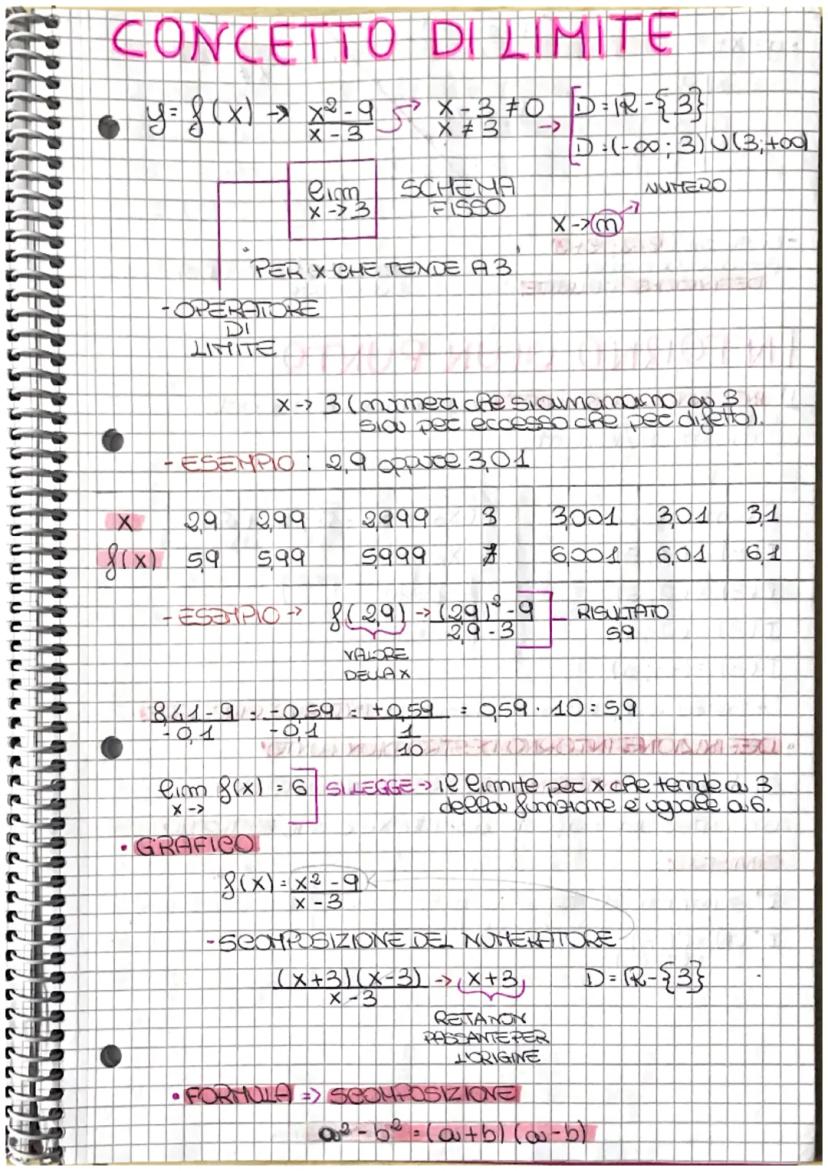 CONCETTO DI LIMITE
y = f(x) → x² - 9 / x - 3 → x - 3 ≠ 0 x ≠ 3 → D = IR - {3}
D = (-∞; 3) U (3; +∞)
lim x → 3 SCHEMA FISSO
x → n NUMERO
"PER X CHE TENDE A 3"
- OPERATORE
DI
LIMITE
x → 3 (numeri che si avvicinano a 3
sia per eccesso che per difetto).
- ESEMPIO : 2,9 oppure 3,01
x 2,9 2,99 2,999 3 3,001 3,01 3,1
f(x) 5,9 5,99 5,999 ∄ 6,001 6,01 6,1
- ESEMPIO → f(2,9) → (2,9)² - 9 / 2,9 - 3 RISULTATO
5,9
VALORE
DELLA X
8,41 - 9 / -0,1 = -0,59 / -0,1 = +0,59 / 1/10 = 0,59 · 10 = 5,9
lim x → f(x) = 6 SI LEGGE → il limite per x che tende a 3
della funzione è uguale a 6.
• GRAFICO
f(x) = x² - 9 / x - 3
- SCOMPOSIZIONE DEL NUMERATORE
(x+3)(x-3) / x - 3 → x+3 D = IR - {3}
RETA NON
PASSANTE PER
L'ORIGINE
• FORMULA => SCOMPOSIZIONE
a² - b² = (a+b) (a-b)